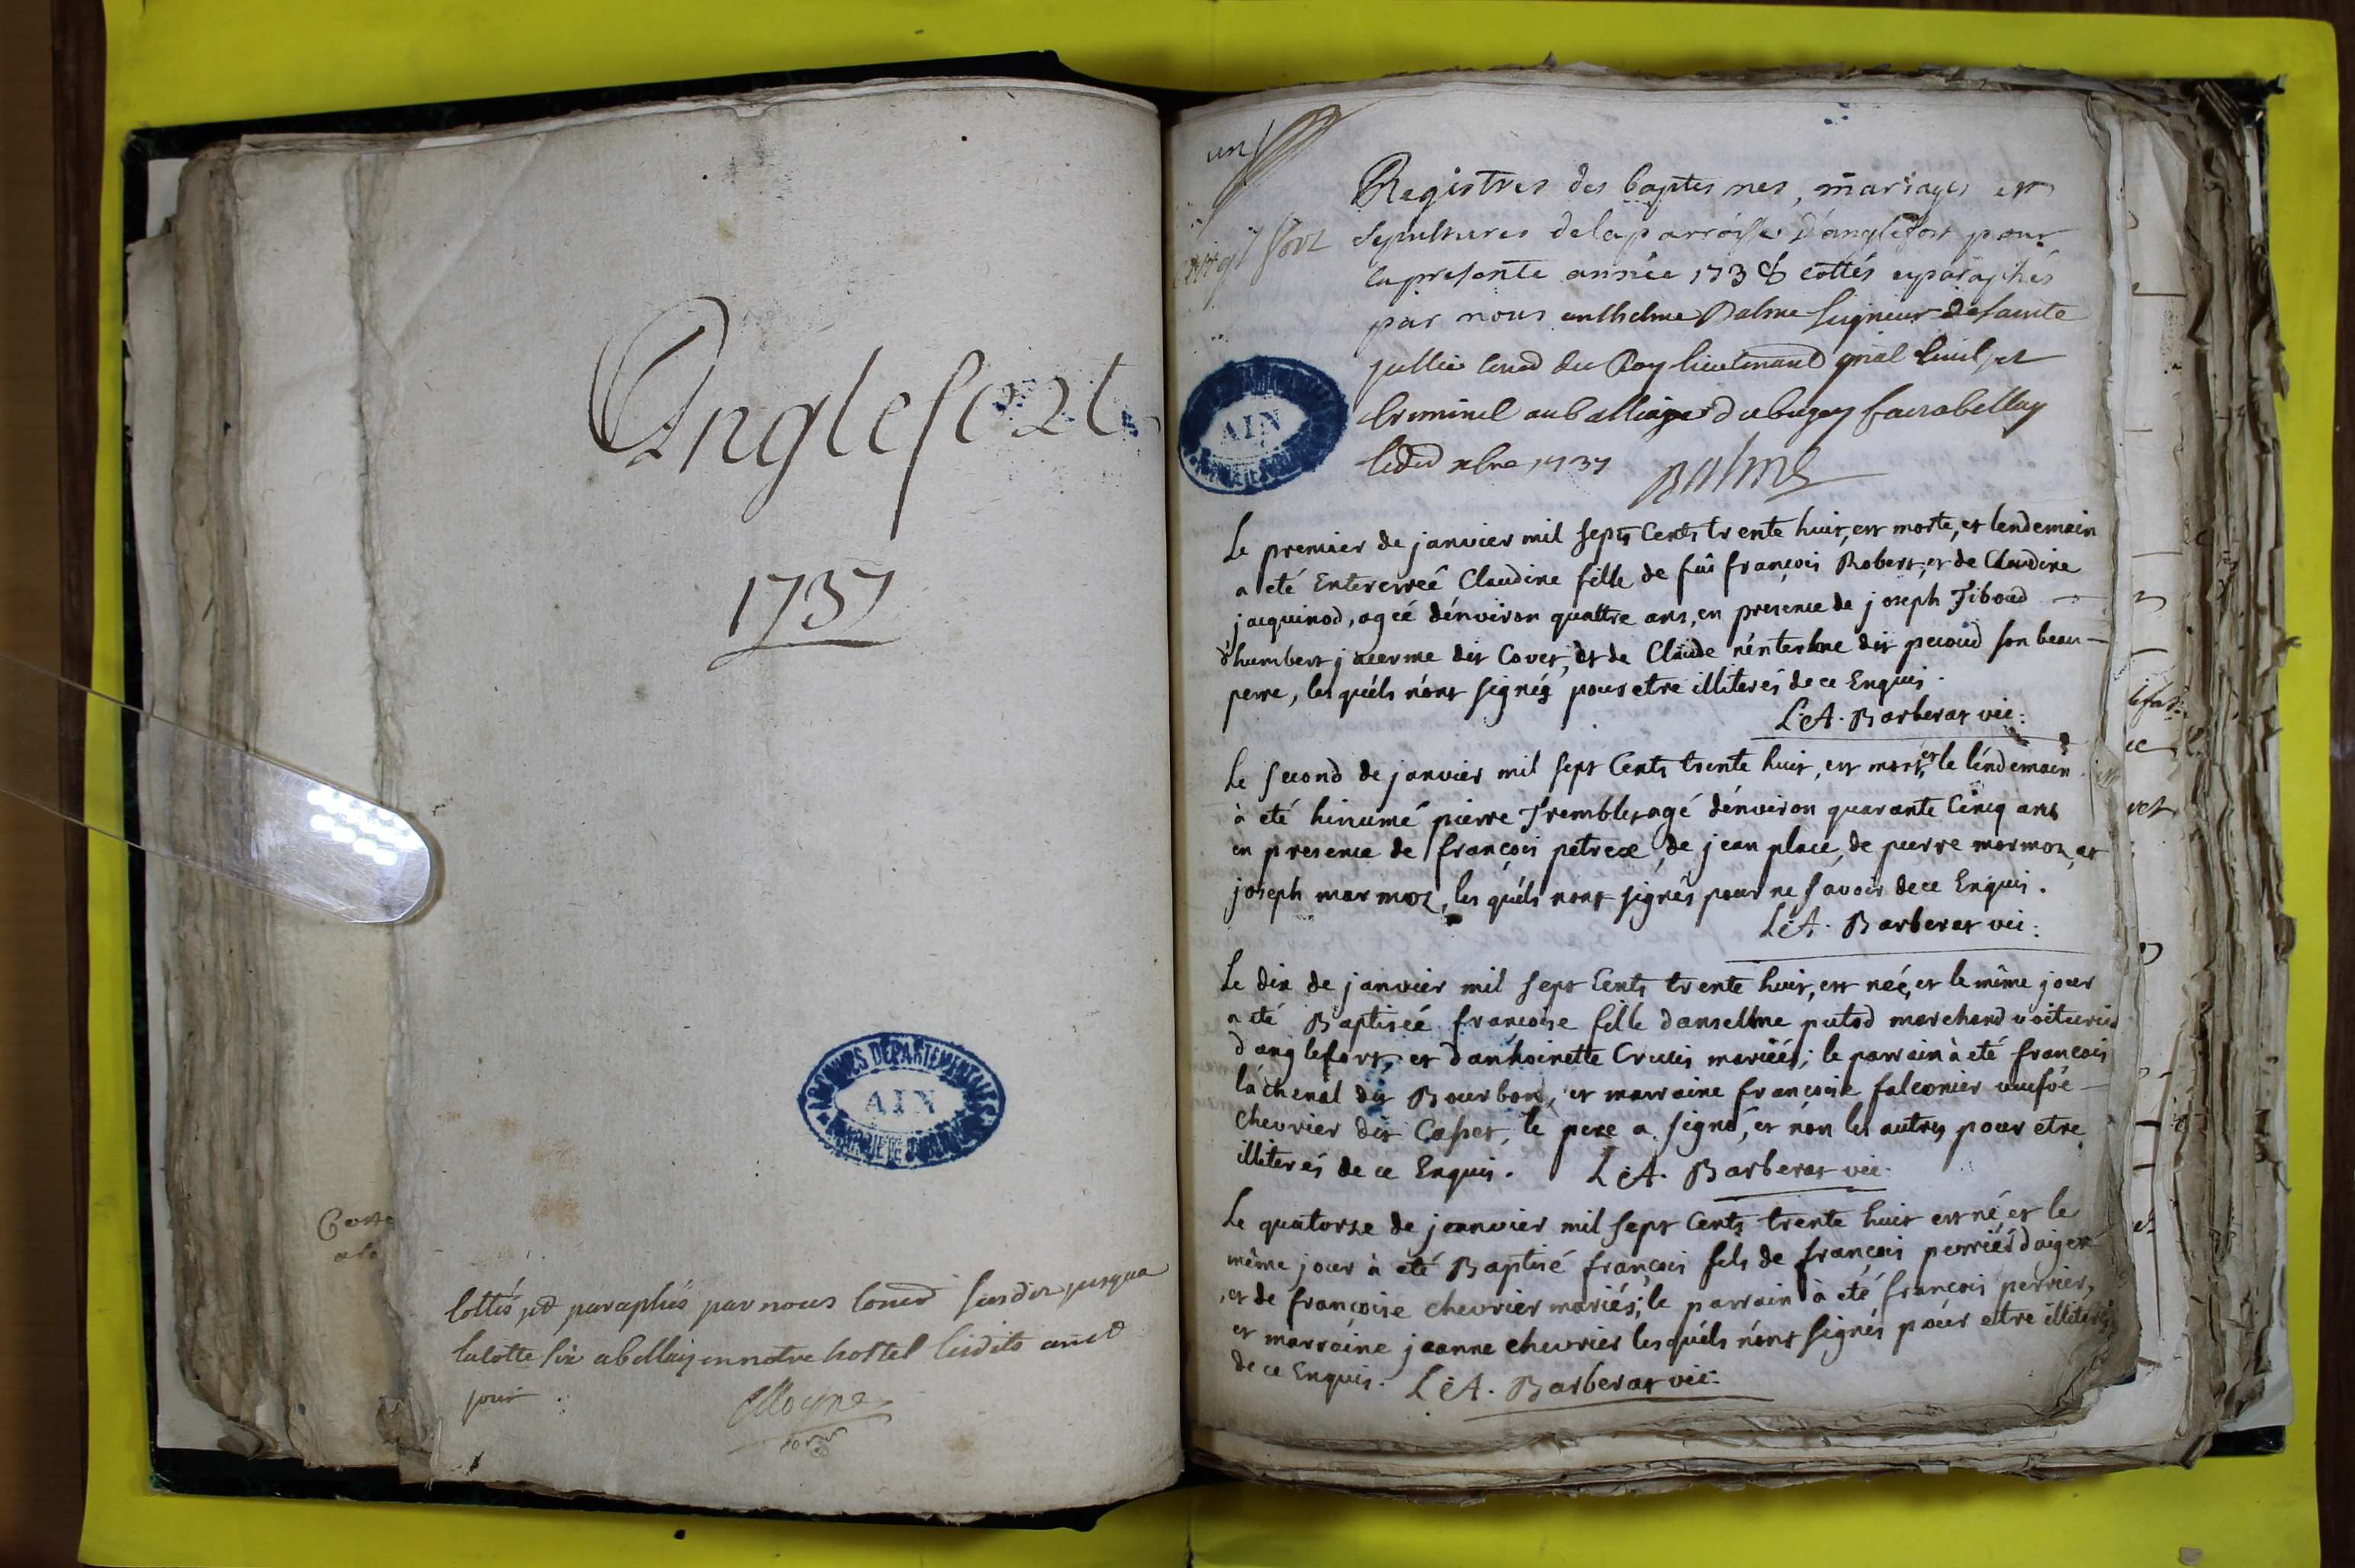 Anglefort
1737
ARCHIVES DEPARTEMENTALES
AIN
Cottés et paraphés par nous Comd susdit jusqua
la cotte six a bellay en notre hostel lesdits an et
jour
un
anglefort
Registres des baptesmes, mariages et
sepultures de la parroisse d'anglefort pour
la presente année 1738 cottés et paraphés
par nous anthelme Balme seigneur de sainte
jullie du Roy lieutenant gnal Civil et
Criminel au balliage du bugey fait a bellay
xbre 1737 Balme
Le premier de janvier mil septs Cents trente huit, est morte, et lendemain
a eté Enterrreé Claudine fille de fûi françois Robert, et de Claudine
jacquinod, ageé dénviron quattre ans, en presence de joseph Tiboud
d'humbert jacerme dit Covet, et de Claude dit pecoud son beau-
perre, les quéls n'ont signés pour etre illiterés de ce Enquis.
L. A. Barberat vic:
Le second de janvier mil sept Cents trente huit, est mort, et le léndemain
à eté hinumé pierre Tremblet agé dénviron quarante Cincq ans
en presence de françois petrex, de jean place, de pierre marmoz, et
joseph marmoz, les quéls n'ont signés pour ne savoir de ce Enquis.
L. A. Barberat vic:
Le dix de janvier mil sept Cents trente huit, est neé, et le même jour
a eté Baptiseé françoise fille danselme putod marchand voiturier
d'anglefort, et d'anthoinette Crutis mariéés; le parrain à eté françois
láchenal dit Bourbon, et marraine françoise falconier veufve
Chevrier dit Casset, le pere a signé, et nón les autres pour etre
illiterés de ce Enquis. L. A. Barberat vic.
Le quatorze de jeanvier mil sept Cents trente huit est né et le
même jour à eté Baptisé françois fils de françois perrier
et de françoise chevrier mariés; le parrain à eté françois perrier,
et marraine jeanne chevrier les quéls n'ont signés pour etre illiterés
de ce Enquis. L. A. Barberat vic: